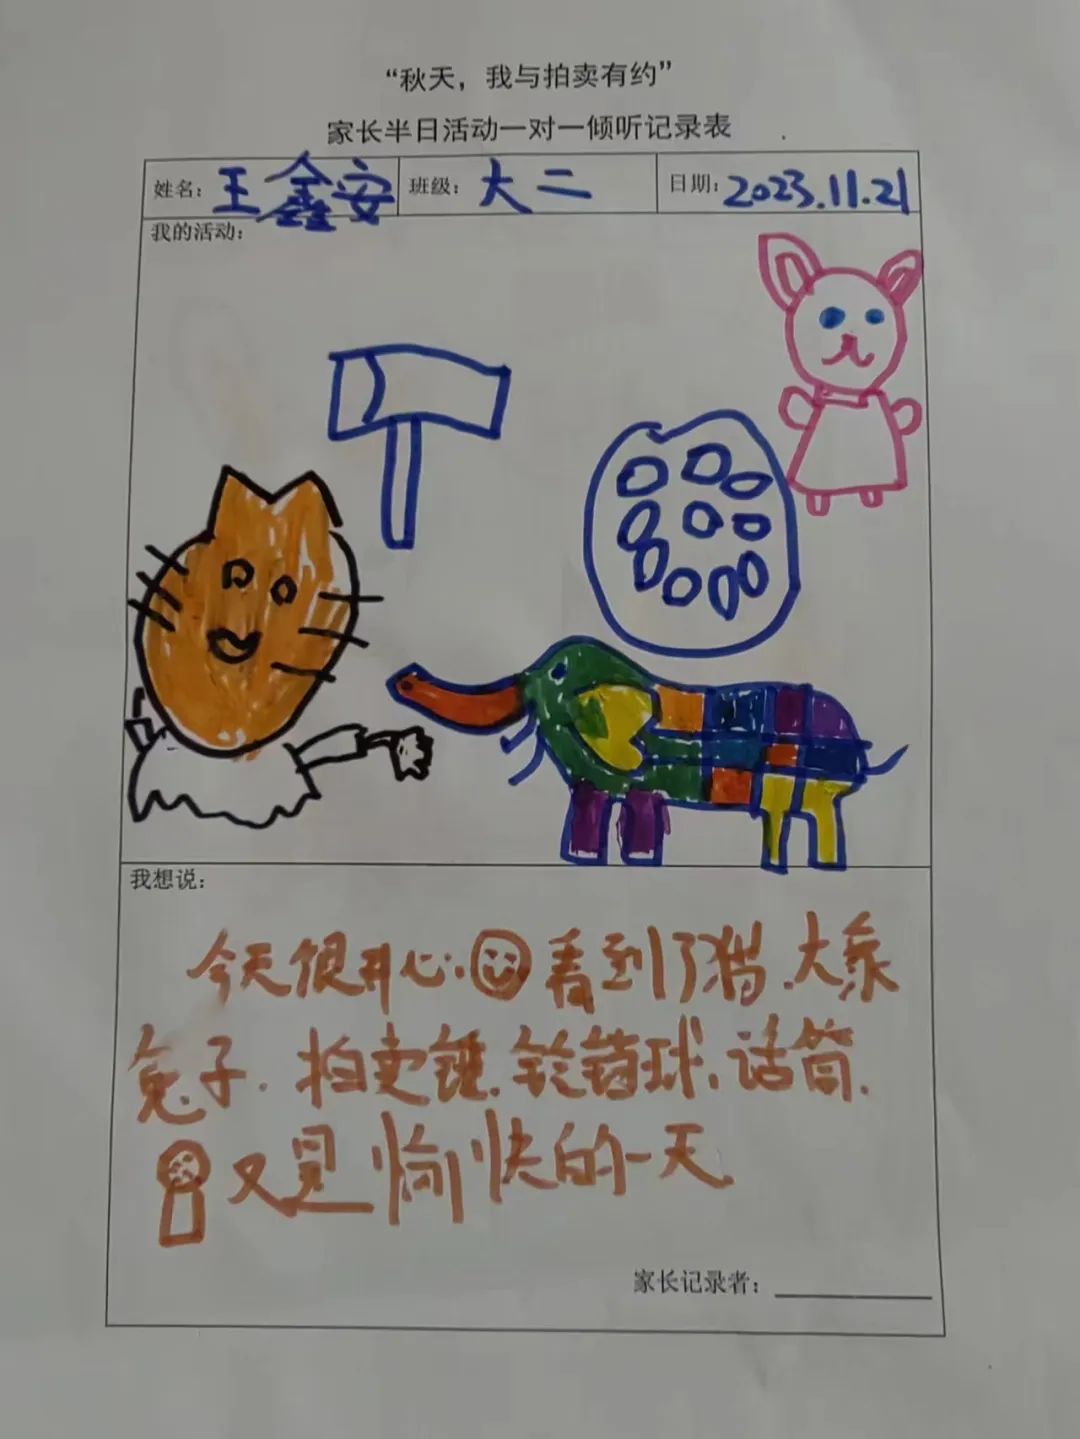 “秋天，我与拍卖有约”
家长半日活动一对一倾听记录表
姓名：王鑫安 班级：大二 日期：2023.11.21
我的活动：
我想说：
今天很开心.看到了猫.大象
兔子.拍卖锤.铃铛球.话筒.
又是愉快的一天
家长记录者：